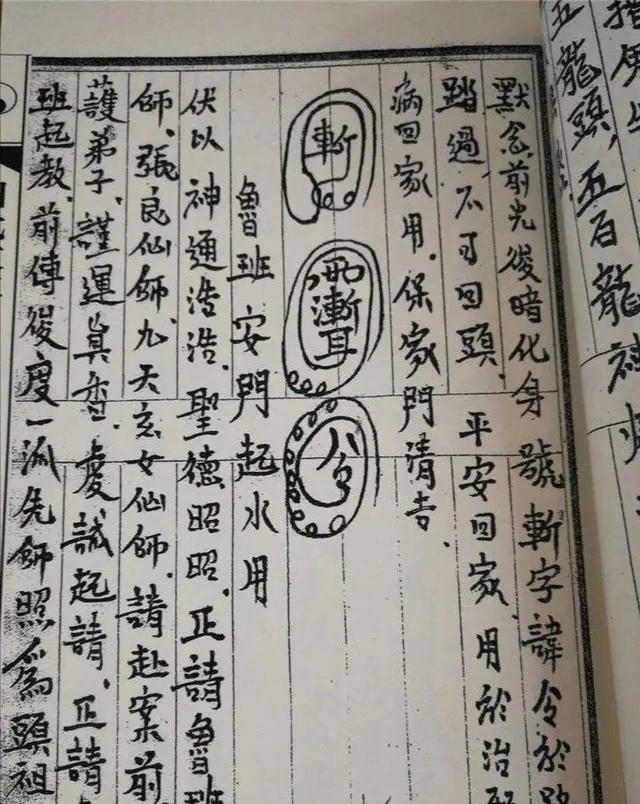 五龍頭,五百龍神
默念前光後暗化身號斬字諱令於
踏過不可回頭.平安回家.用於治
病回家用.保家門清吉.
斬
漸耳
魯班安門起水用
伏以神通浩浩.聖德昭昭.正請魯班
師.張良仙師.九天玄女仙師.請赴案前
護弟子.謹運真香.虔誠起請.正請
班起教.前傳後度一派先師照爲頭祖